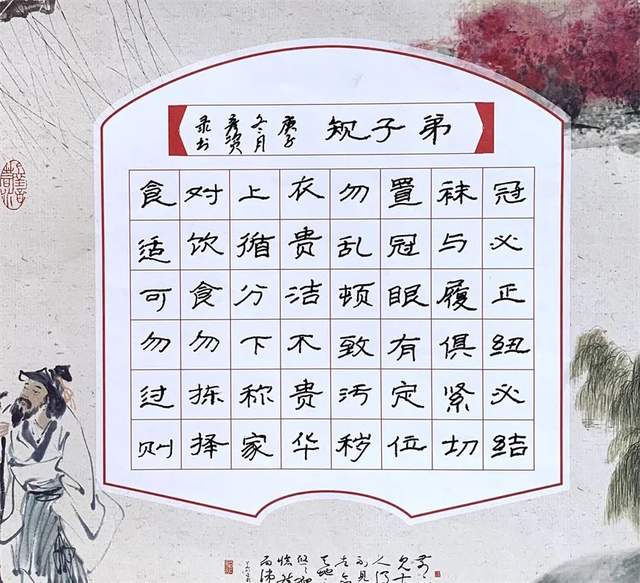 弟子规
庚子
冬月
录书
冠必正纽必结
袜与履俱紧切
置冠眼有定位
勿乱顿致污秽
衣贵洁不贵华
上循分下称家
对饮食勿拣择
食适可勿过则